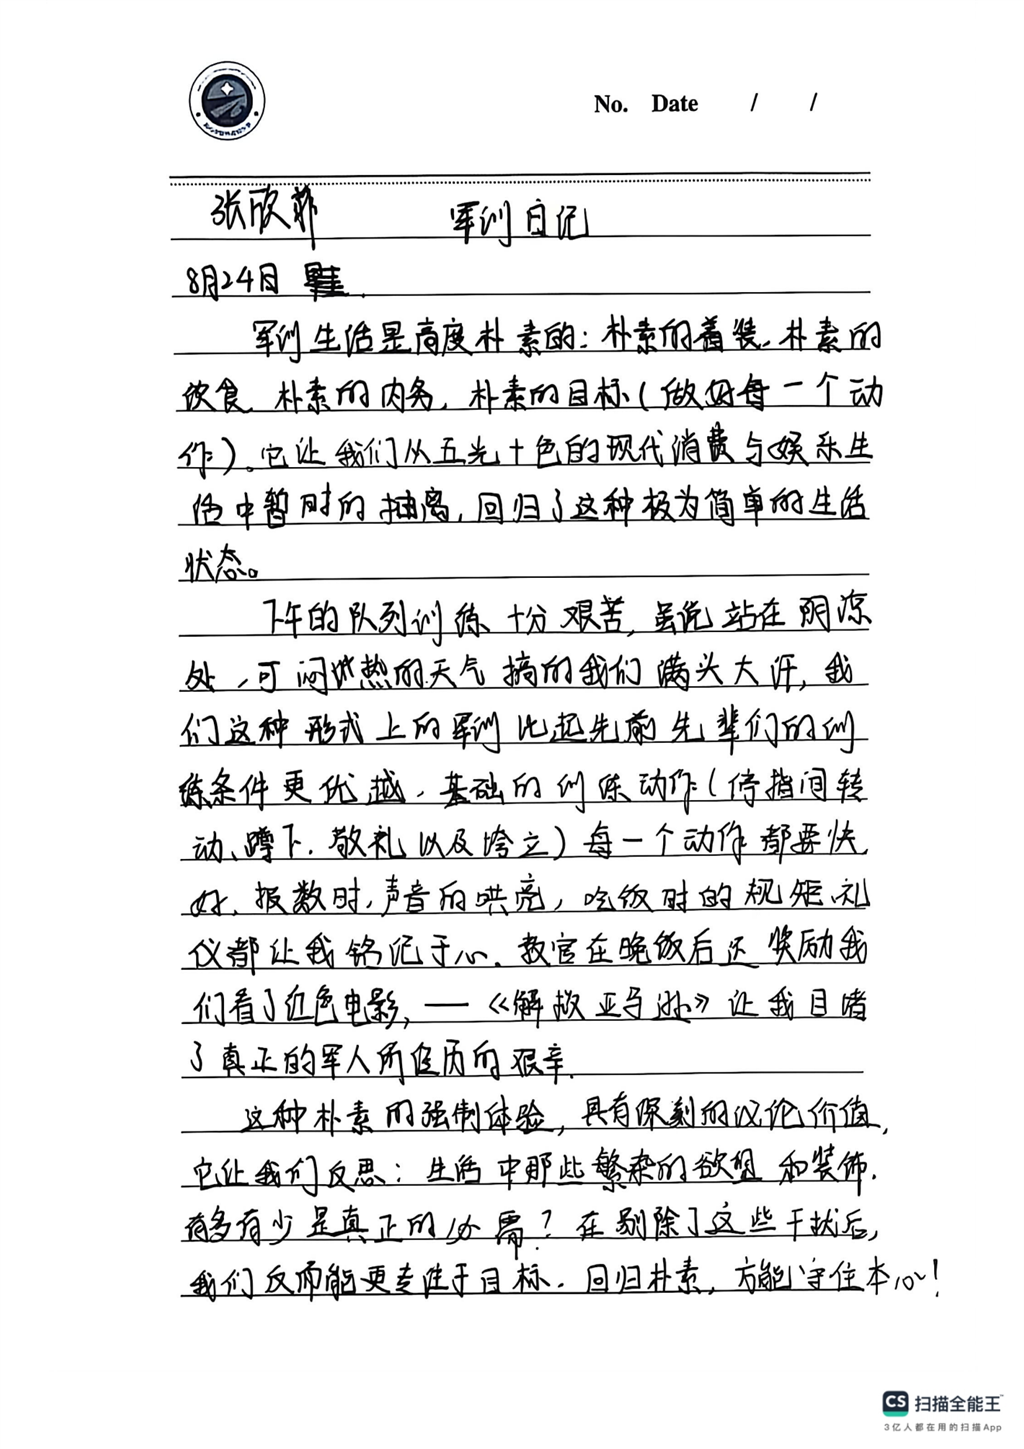 No. Date / /
张欣菲 军训日记
8月24日
军训生活是高度朴素的：朴素的着装、朴素的
饮食、朴素的内务，朴素的目标（做好每一个动
作）。它让我们从五光十色的现代消费与娱乐生
活中暂时的抽离，回归了这种极为简单的生活
状态。
下午的队列训练十分艰苦，虽说站在阴凉
处，可闷热的天气搞的我们满头大汗，我
们这种形式上的军训比起先前先辈们的训
练条件更优越，基础的训练动作（停指间转
动、蹲下、敬礼以及垮立）每一个动作都要快
好、报数时，声音的哄亮，吃饭时的规矩礼
仪都让我铭记于心。教官在晚饭后还奖励我
们看了红色电影，——《解放》让我目睹
了真正的军人所经历的艰辛。
这种朴素的强制体验，具有深刻的议论价值，
它让我们反思：生活中那些繁杂的欲望和装饰，
有多有少是真正的必需？在剔除了这些干扰后，
我们反而能更专注于目标。回归朴素，方能守住本心！
CS 扫描全能王
3亿人都在用的扫描App